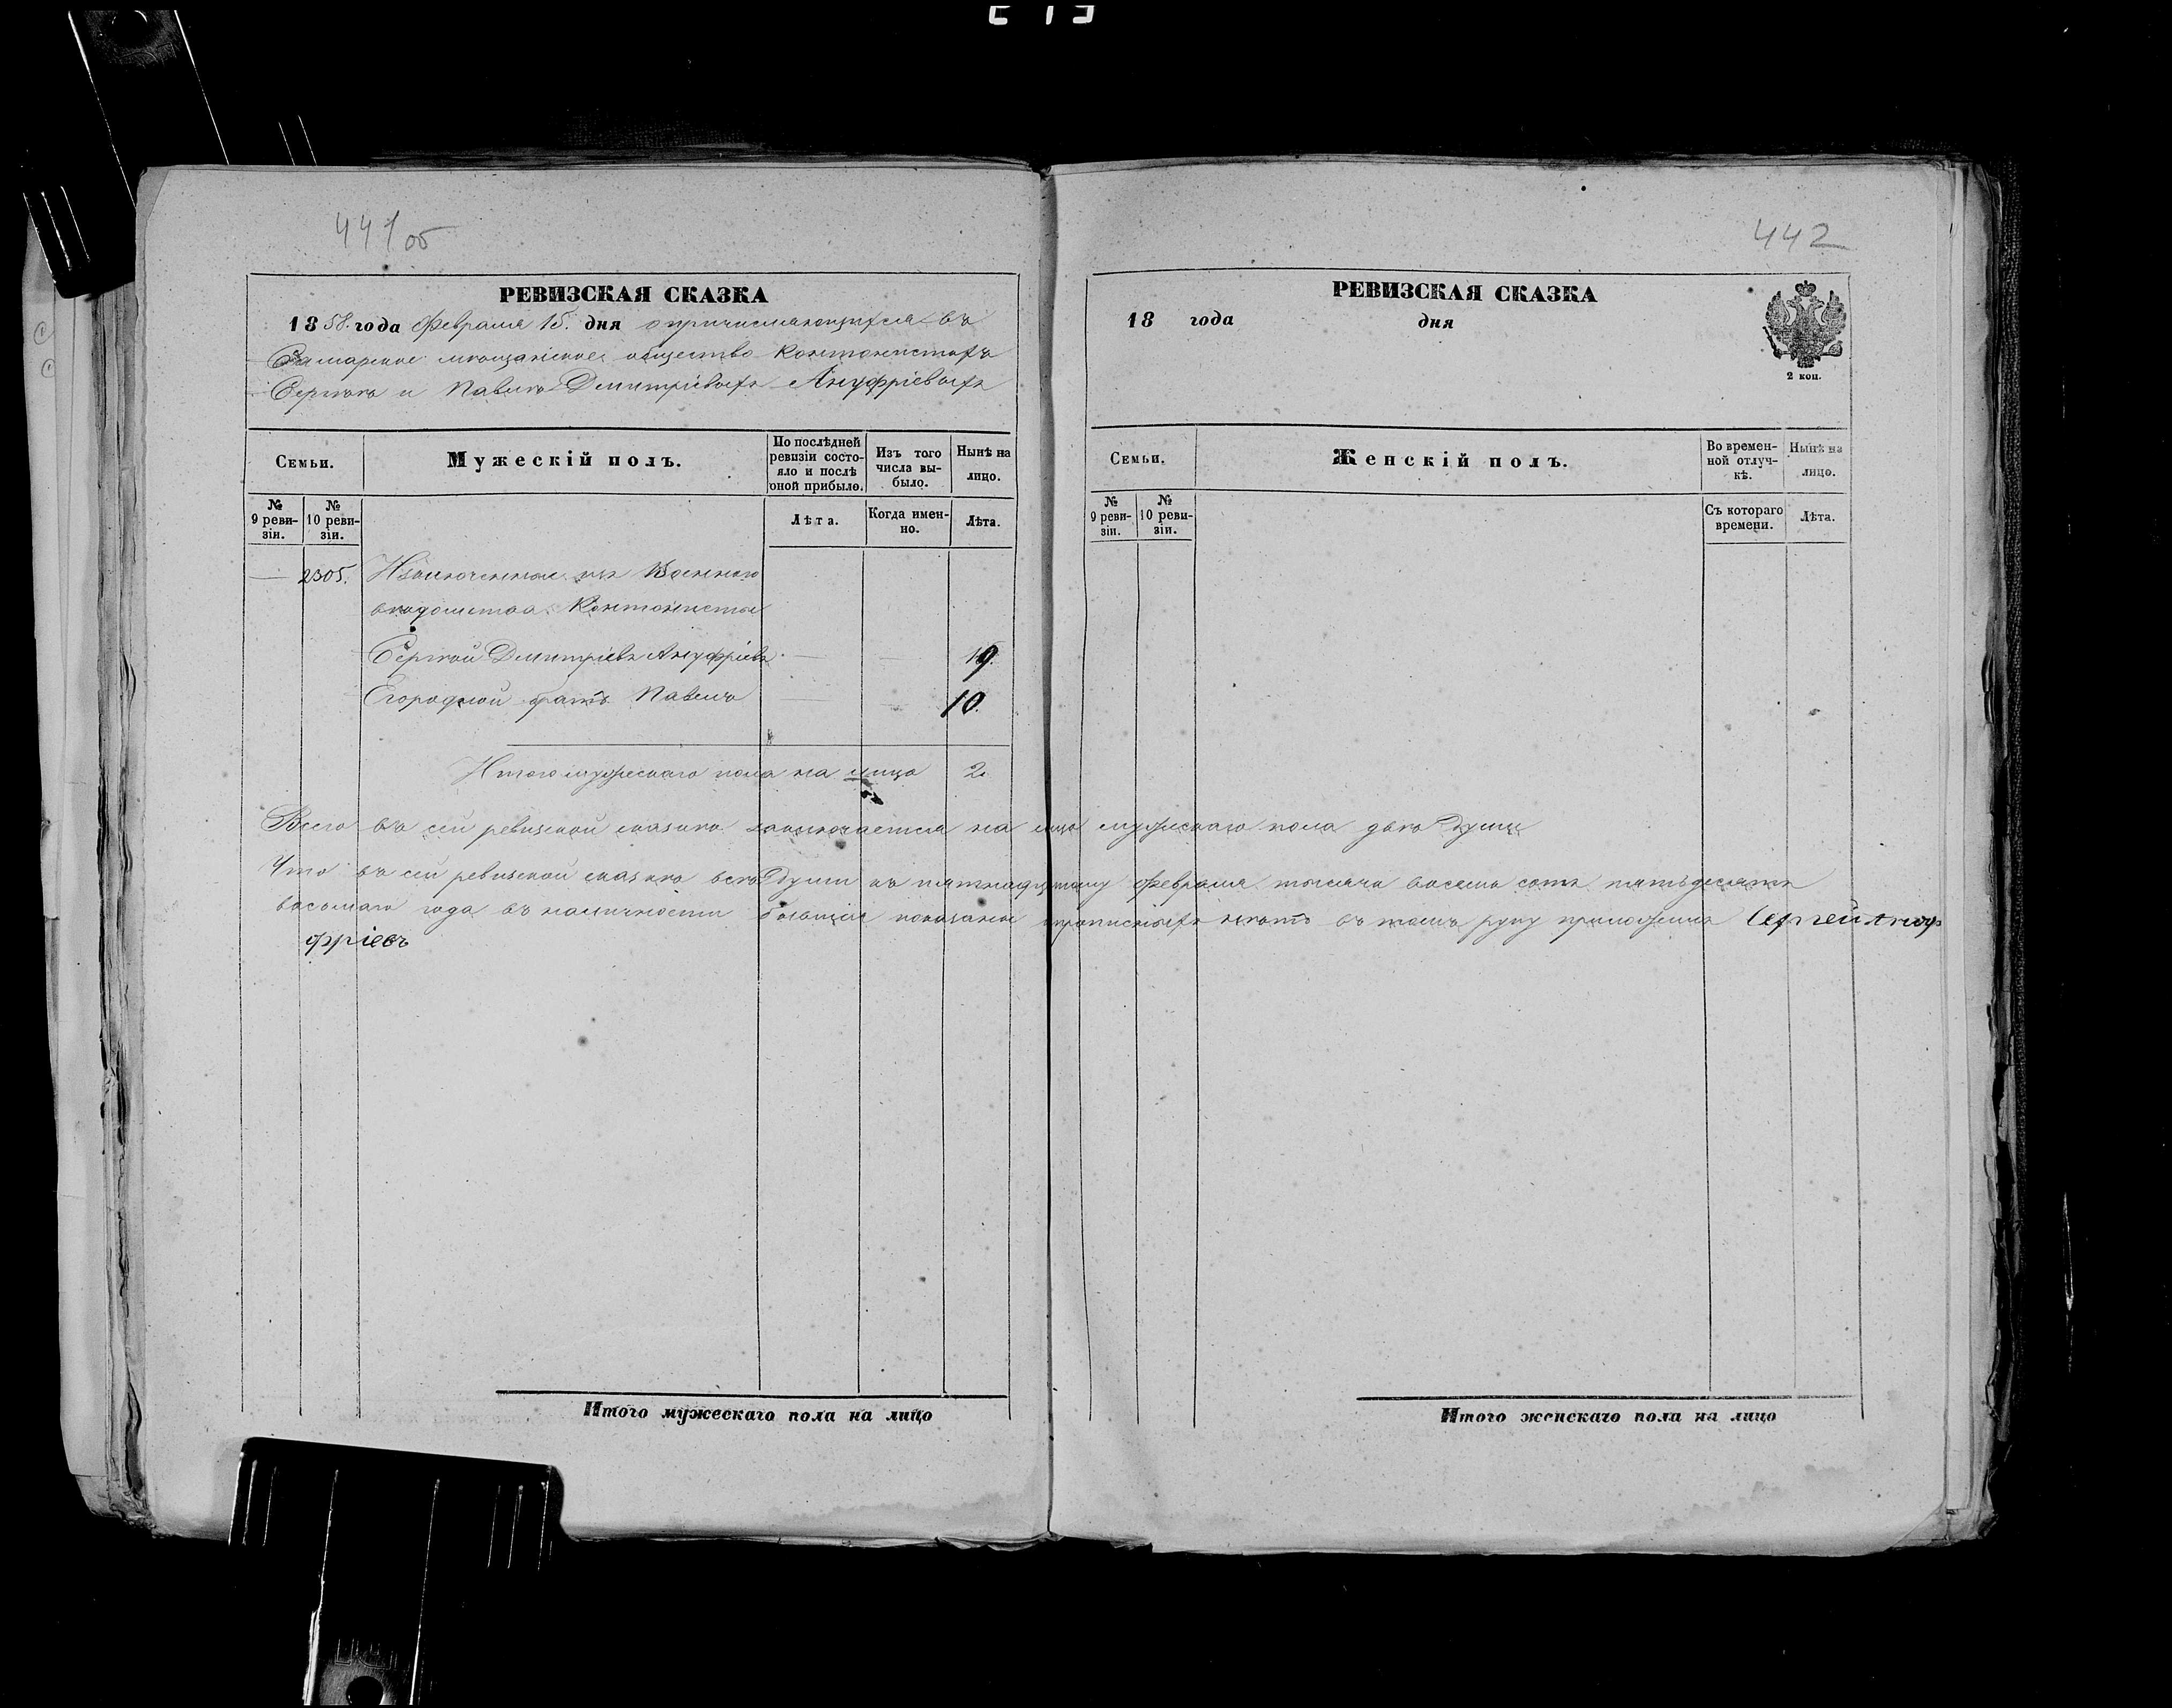 441об
РЕВИЗСКАЯ СКАЗКА
1858. года Февраля 15. дня о причисляющихся въ
Самарское мѣщанское общество Кантонистахъ
Сергѣѣ и Павлѣ Дмитріевыхъ Ануфріевыхъ
Семьи.
Мужескій полъ.
По послѣдней ревизіи состояло и послѣ оной прибыло.
Изъ того числа выбыло.
Нынѣ на лицо.
№ 9 ревизіи.
№ 10 ревизіи.
Лѣта.
Когда именно.
Лѣта.
— 2305. Изключенные изъ Военнаго
вѣдомства Кантонисты
Сергѣй Дмитріевъ Ануфріевъ — — 19.
Егородной братъ Павелъ — — 10.
Итого мужескаго пола на лицо 2.
Всего въ сей ревизской сказкѣ заключается на лицо мужескаго пола двѣ души
Что въ сей ревизской сказкѣ всѣ души къ пятнадцатому Февраля тысяча восемь сотъ пятьдесятъ
восьмаго года въ наличности бывшія показаны и прописныхъ нѣтъ въ томъ руку приложилъ Сергей Ануф
фріевъ
Итого мужескаго пола на лицо
442
РЕВИЗСКАЯ СКАЗКА
18 года дня
2 коп.
Семьи.
Женскій полъ.
Во временной отлучкѣ.
Нынѣ на лицо.
№ 9 ревизіи.
№ 10 ревизіи.
Съ котораго времени.
Лѣта.
Итого женскаго пола на лицо